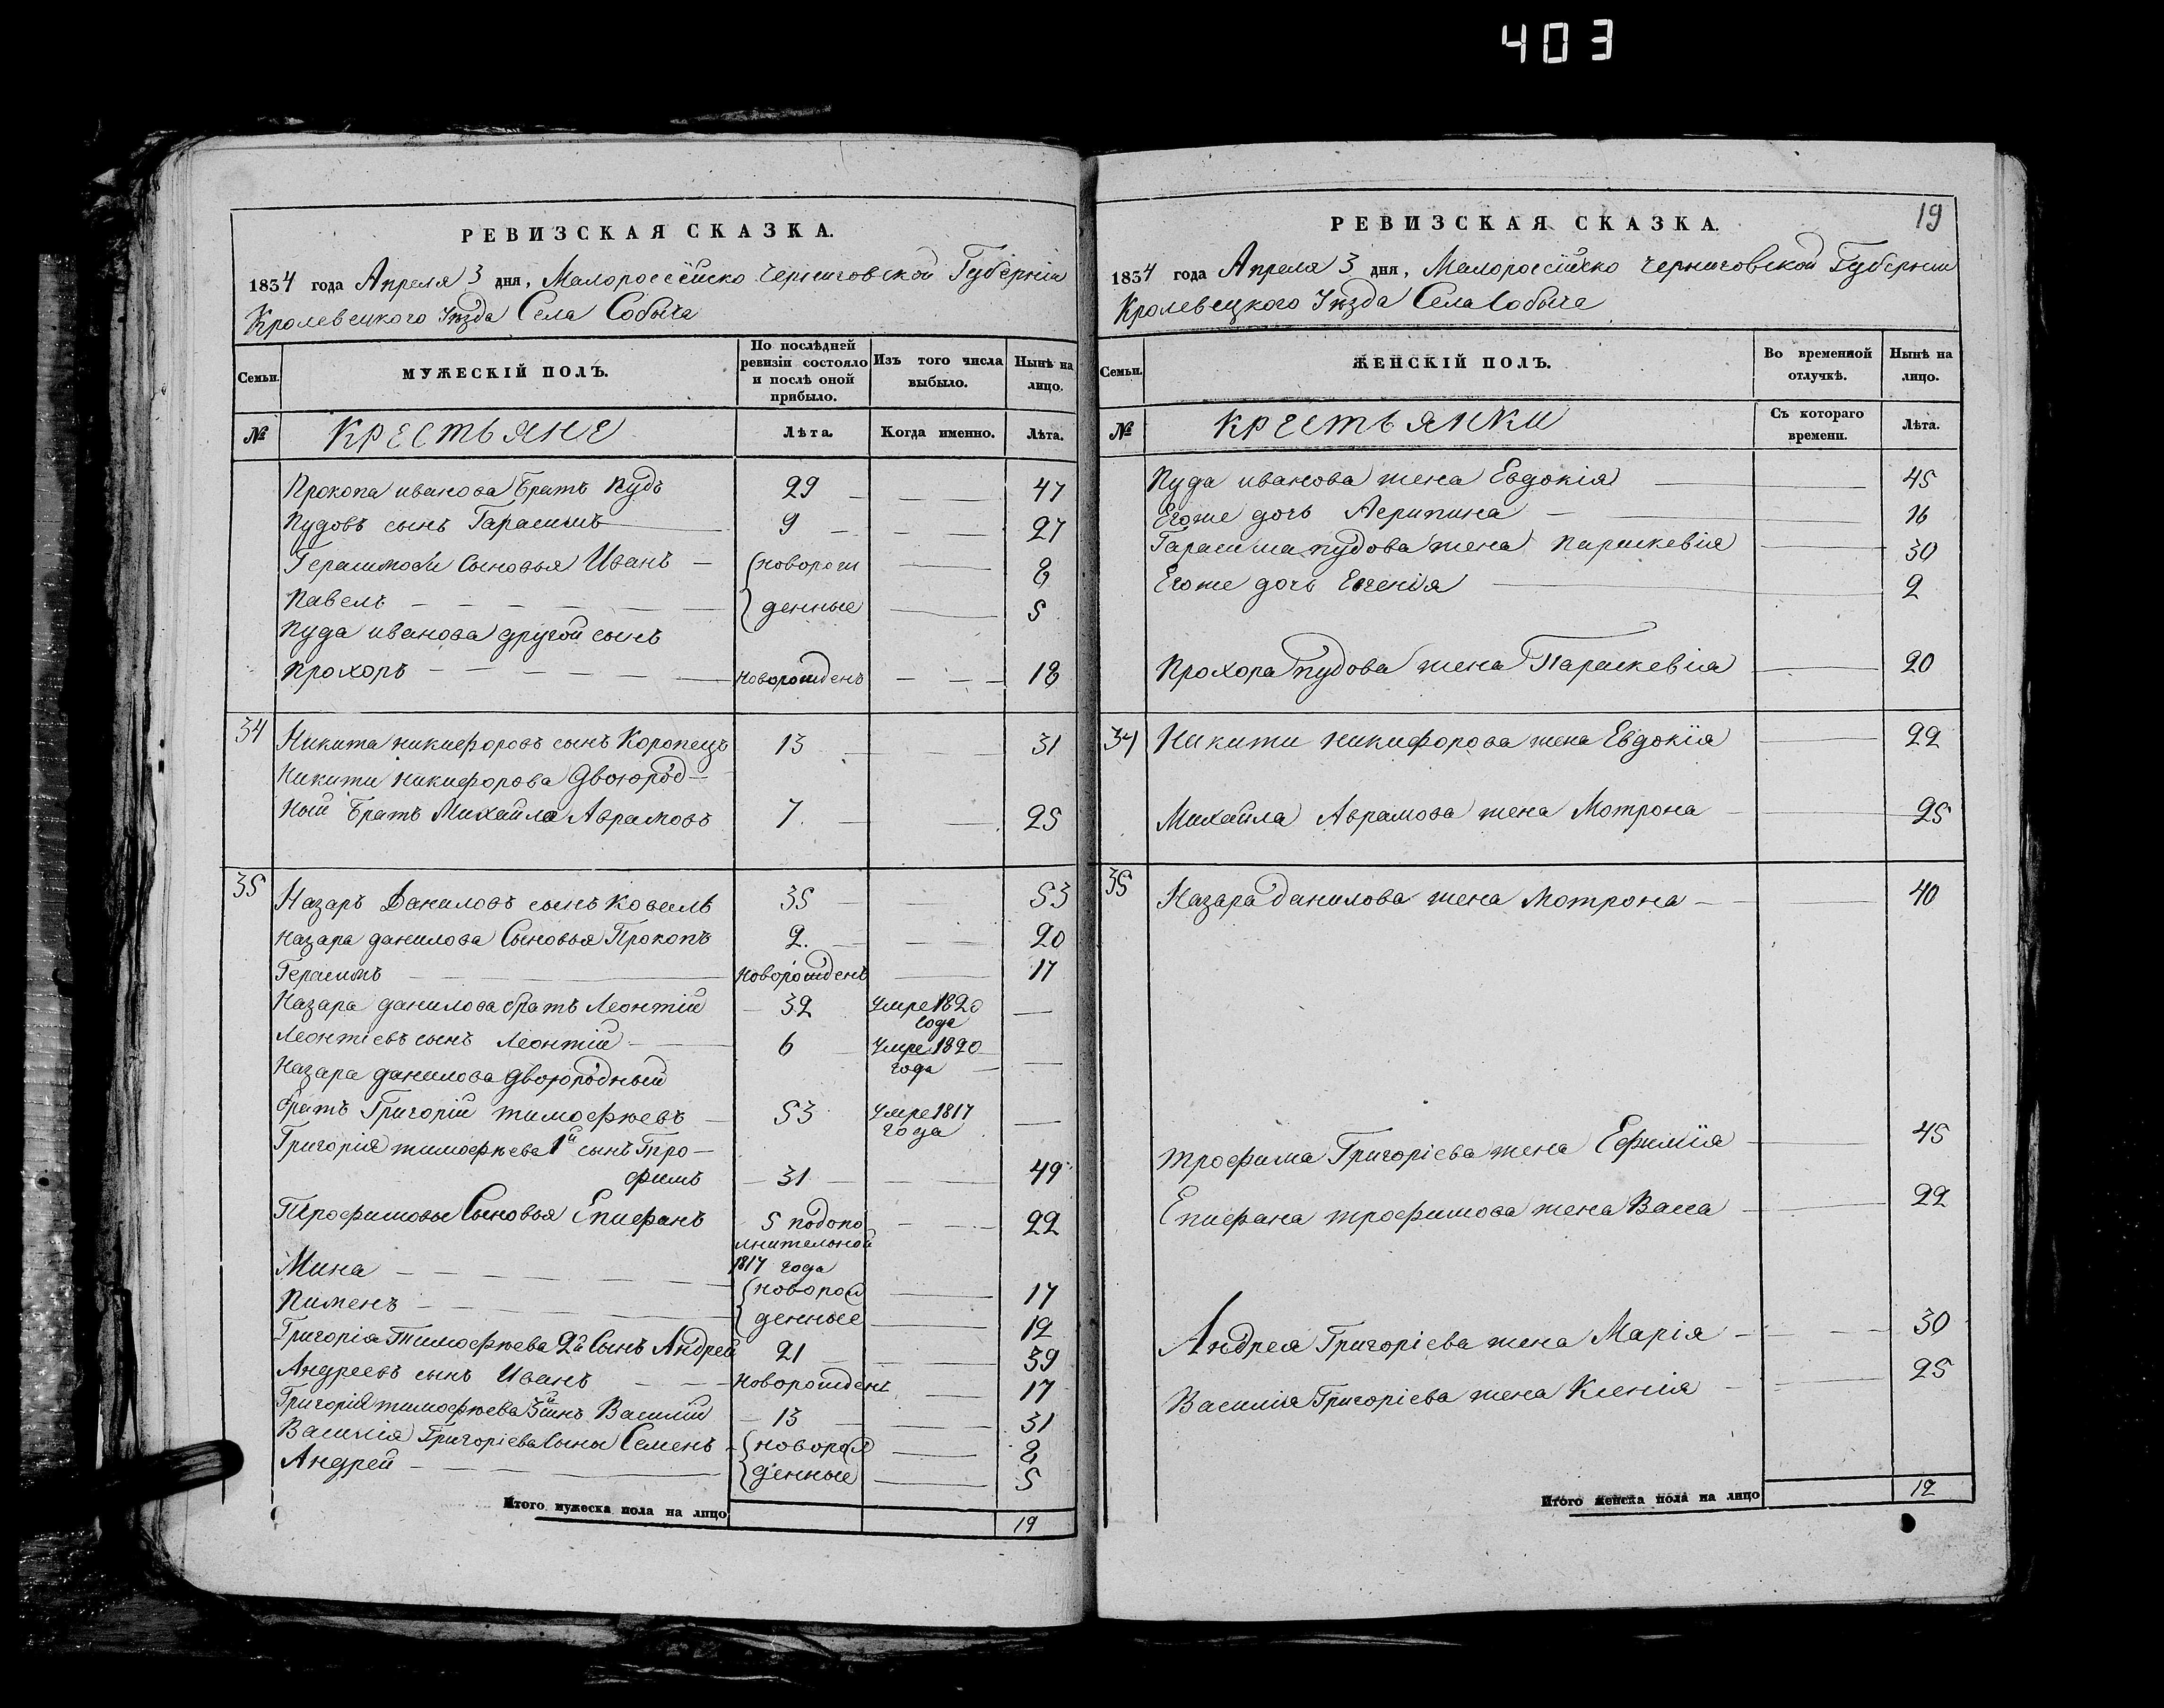 403
РЕВИЗСКАЯ СКАЗКА.
1834 года Апреля 3 дня, Малороссійско Черниговской Губерніи
Кролевецкого Уѣзда Села Собыча
Семьи. МУЖЕСКІЙ ПОЛЪ. По послѣдней ревизіи состояло и послѣ оной прибыло. Изъ того числа выбыло. Нынѣ на лицо.
№ Крестьяне Лѣта. Когда именно. Лѣта.
Прокопа иванова Братъ Пудъ 29 47
Пудовъ сынъ Гарасимъ 9 27
Герасимови Сыновья Иванъ новорож 8
Павелъ денные 5
Пуда иванова другой сынъ
Прохоръ новорожденъ 18
34 Никита никифоровъ сынъ Коропецъ 13 31
Никити никифорова двоюрод-
ный Братъ Михайла Аврамовъ 7. 25
35 Назаръ Даниловъ сынъ Коваль 35 53
Назара данилова Сыновья Прокопъ 2. 20
Герасимъ новорожденъ 17
Назара данилова братъ Леонтій 32 Умре 1820 года
Леонтіевъ сынъ Леонтій 6 Умре 1820 года
Назара данилова двоюродный
братъ Григорій тимофѣевъ 53 Умре 1817 года
Григорія тимофѣева 1й сынъ Тро-
фимъ 31 49
Трофимовы Сыновья Епифанъ 5 подопо 22
лнительной
Мина 1817 года
новорож 17
Пименъ денные 12
Григорія Тимофѣева 2й Сынъ Андрей 21 39
Андреевъ сынъ Иванъ Новорожденъ 17
Григорія тимофѣева 3й сынъ Василій 13 31
Василія Григоріева Сыны Семенъ новорож 8
Андрей денные 5
Итого мужеска пола на лицо 19
19
РЕВИЗСКАЯ СКАЗКА.
1834 года Апреля 3 дня, Малороссійско Черниговской Губерніи
Кролевецкого Уѣзда Села Собыча
Семьи. ЖЕНСКІЙ ПОЛЪ. Во временной отлучкѣ. Нынѣ на лицо.
№ Крестьянки Съ котораго времени. Лѣта.
Пуда иванова жена Евдокія 45
Егоже дочь Агрипина 16
Гарасима пудова жена Параскевія 30
Егоже дочь Евгенія 2
Прохора пудова жена Параскевія 20
34 Никити никифорова жена Евдокія 22
Михайла Аврамова жена Мотрона 25
35 Назара данилова жена Мотрона 40
Трофима Григоріева жена Ефимія 45
Епифана трофимова жена Васса 22
Андрея Григоріева жена Марія 30
Василія Григоріева жена Ксенія 25
Итого женска пола на лицо 12